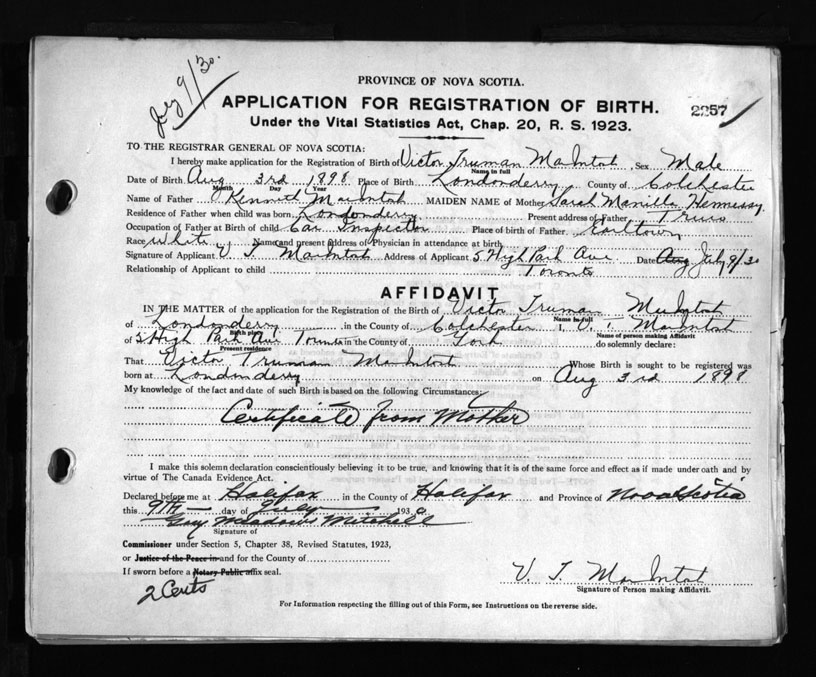 July 9/30.
PROVINCE OF NOVA SCOTIA.
APPLICATION FOR REGISTRATION OF BIRTH.
2257
Under the Vital Statistics Act, Chap. 20, R. S. 1923.
TO THE REGISTRAR GENERAL OF NOVA SCOTIA:
I hereby make application for the Registration of Birth of Victor Truman MacIntosh Sex Male
Name in full
Date of Birth Aug 3rd 1898 Place of Birth Londonderry County of Colchester
Month Day Year
Name of Father Kenneth MacIntosh MAIDEN NAME of Mother Sarah Hennessy
Residence of Father when child was born Londonderry Present address of Father Truro
Occupation of Father at Birth of child Car Inspector Place of birth of Father Earltown
Race White Name and present address of Physician in attendance at birth
Signature of Applicant V. T. MacIntosh Address of Applicant 5 High Park Ave Date Aug July 9/30
Relationship of Applicant to child Toronto
AFFIDAVIT
IN THE MATTER of the application for the Registration of the Birth of Victor Truman MacIntosh
Name in full
of Londonderry in the County of Colchester I, V. T. MacIntosh
Birth place Name of person making Affidavit
of 5 High Park Ave Toronto in the County of York do solemnly declare:
Present residence
That Victor Truman MacIntosh Whose Birth is sought to be registered was
born at Londonderry on Aug 3rd 1898
My knowledge of the fact and date of such Birth is based on the following Circumstances:
Certificate from Mother
I make this solemn declaration conscientiously believing it to be true, and knowing that it is of the same force and effect as if made under oath and by
virtue of The Canada Evidence Act.
Declared before me at Halifax in the County of Halifax and Province of Nova Scotia
this 9th day of July 1930
Guy Meadows Mitchell
Signature of
Commissioner under Section 5, Chapter 38, Revised Statutes, 1923,
or Justice of the Peace in and for the County of
If sworn before a Notary Public affix seal.
V. T. MacIntosh
Signature of Person making Affidavit.
2 Cents
For Information respecting the filling out of this Form, see Instructions on the reverse side.